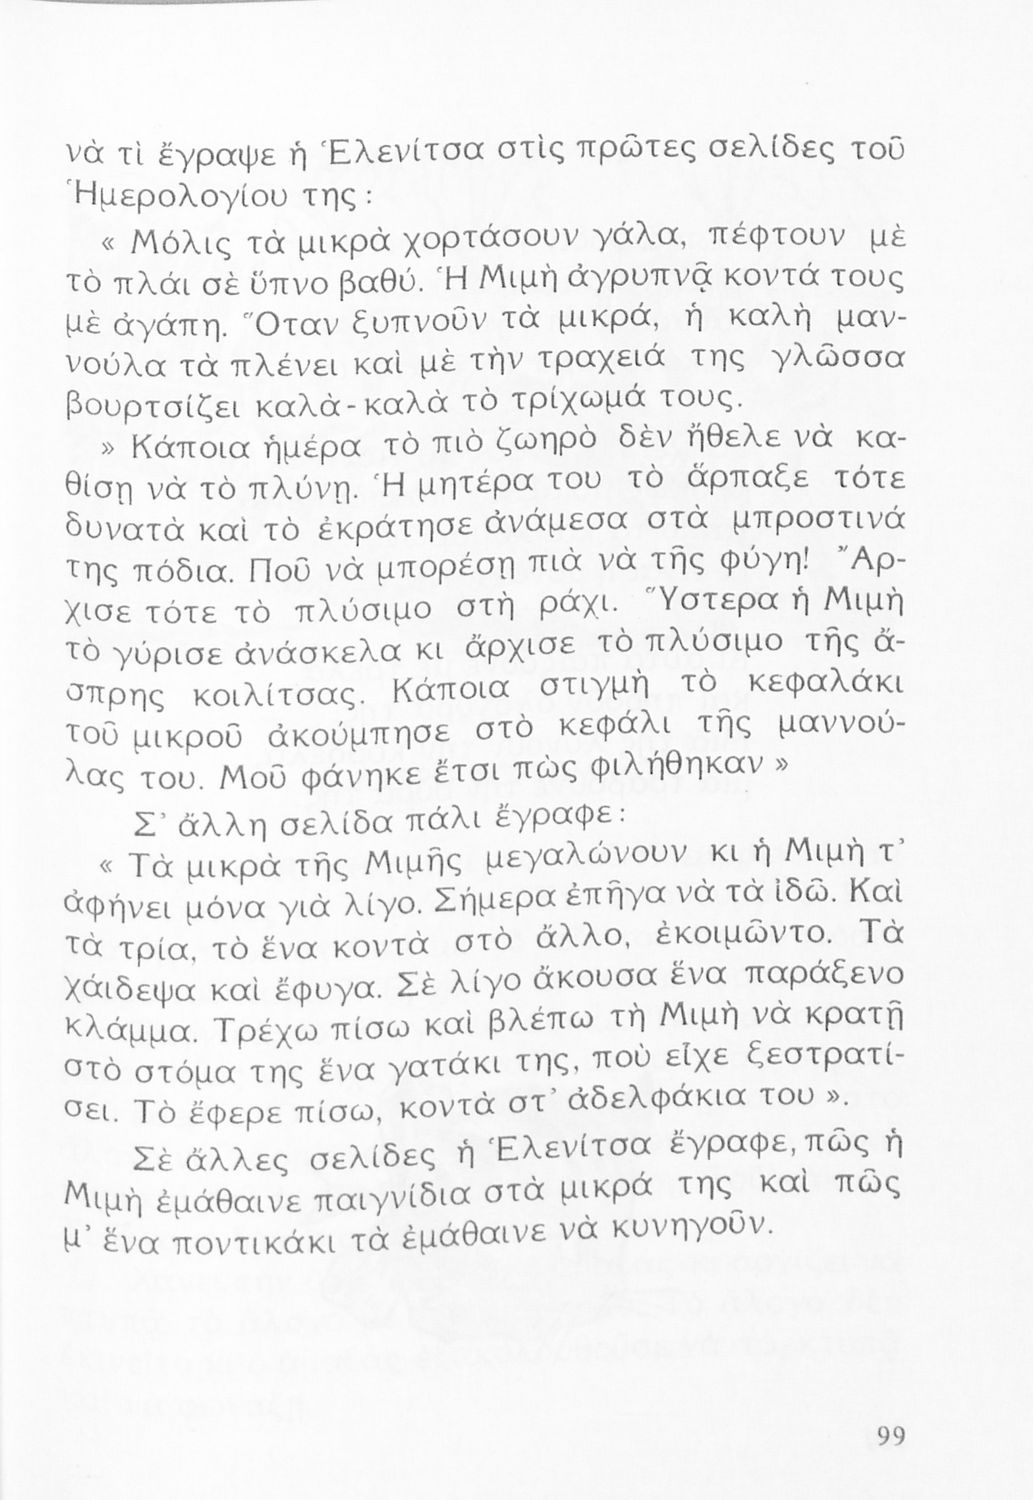 νὰ τὶ ἔγραψε ἡ Ἑλενίτσα στὶς πρῶτες σελίδες τοῦ
Ἡμερολογίου της :
« Μόλις τὰ μικρὰ χορτάσουν γάλα, πέφτουν μὲ
τὸ πλάι σὲ ὕπνο βαθύ. Ἡ Μιμὴ ἀγρυπνᾷ κοντά τους
μὲ ἀγάπη. Ὅταν ξυπνοῦν τὰ μικρά, ἡ καλὴ μαν-
νούλα τὰ πλένει καὶ μὲ τὴν τραχειά της γλῶσσα
βουρτσίζει καλὰ - καλὰ τὸ τρίχωμά τους.
» Κάποια ἡμέρα τὸ πιὸ ζωηρὸ δὲν ἤθελε νὰ κα-
θίσῃ νὰ τὸ πλύνῃ. Ἡ μητέρα του τὸ ἅρπαξε τότε
δυνατὰ καὶ τὸ ἐκράτησε ἀνάμεσα στὰ μπροστινά
της πόδια. Ποῦ νὰ μπορέσῃ πιὰ νὰ τῆς φύγη! Ἄρ-
χισε τότε τὸ πλύσιμο στὴ ράχι. Ὕστερα ἡ Μιμὴ
τὸ γύρισε ἀνάσκελα κι ἄρχισε τὸ πλύσιμο τῆς ἄ-
σπρης κοιλίτσας. Κάποια στιγμὴ τὸ κεφαλάκι
τοῦ μικροῦ ἀκούμπησε στὸ κεφάλι τῆς μαννού-
λας του. Μοῦ φάνηκε ἔτσι πὼς φιλήθηκαν »
Σ᾽ ἄλλη σελίδα πάλι ἔγραφε :
« Τὰ μικρὰ τῆς Μιμῆς μεγαλώνουν κι ἡ Μιμὴ τ᾽
ἀφήνει μόνα γιὰ λίγο. Σήμερα ἐπῆγα νὰ τὰ ἰδῶ. Καὶ
τὰ τρία, τὸ ἕνα κοντὰ στὸ ἄλλο, ἐκοιμῶντο. Τὰ
χάιδεψα καὶ ἔφυγα. Σὲ λίγο ἄκουσα ἕνα παράξενο
κλάμμα. Τρέχω πίσω καὶ βλέπω τὴ Μιμὴ νὰ κρατῇ
στὸ στόμα της ἕνα γατάκι της, ποὺ εἶχε ξεστρατί-
σει. Τὸ ἔφερε πίσω, κοντὰ στ᾽ ἀδελφάκια του ».
Σὲ ἄλλες σελίδες ἡ Ἑλενίτσα ἔγραφε, πῶς ἡ
Μιμὴ ἐμάθαινε παιγνίδια στὰ μικρά της καὶ πῶς
μ᾽ ἕνα ποντικάκι τὰ ἐμάθαινε νὰ κυνηγοῦν.
99